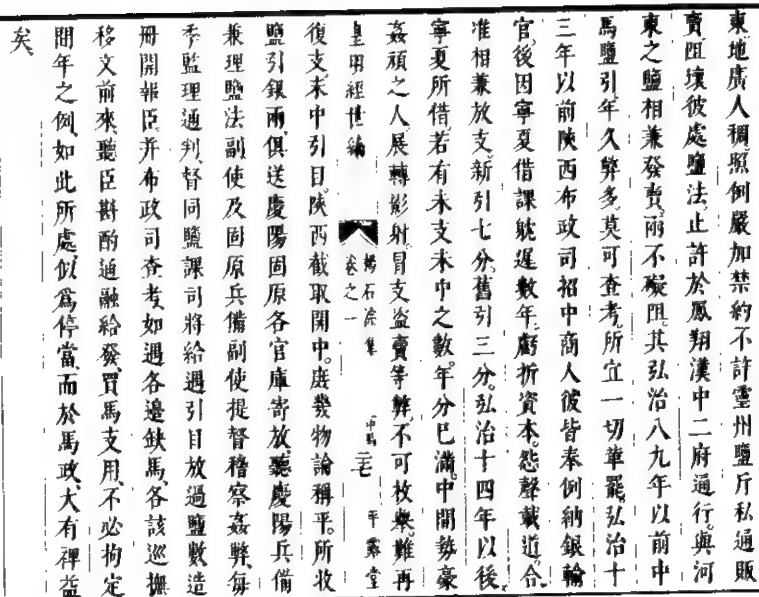 東地廣人稠照例嚴加禁約不許靈州鹽斤私通販
賣阻壞彼處鹽法止許於鳳翔漢中二府通行與河
東之鹽相兼發賣兩不礙阻其弘治八九年以前中
馬鹽引年久弊多莫可查考所宜一切革罷弘治十
三年以前陝西布政司招中商人彼皆奉例納銀輸
官後因寧夏借課躭遲數年虧折資本怨聲載道合
准相兼放支新引七分舊引三分弘治十四年以後
寧夏所借若有未支未中之數年分已滿中間勢豪
姦頑之人展轉影射冒支盜賣等弊不可枚舉難再
皇明經世編
楊石淙集
卷之一
中馬
二七
平露堂
復支未中引目陝西截取開中庶幾物論稱平所收
鹽引銀兩俱送慶陽固原各官庫寄放聽慶陽兵備
兼理鹽法副使及固原兵備副使提督稽察姦弊每
季監理通判督同鹽課司將給過引目放過鹽數造
冊開報臣并布政司查考如遇各邊缺馬各該巡撫
移文前來聽臣斟酌通融給發買馬支用不必拘定
間年之例如此所處似爲停當而於馬政大有裨益
矣